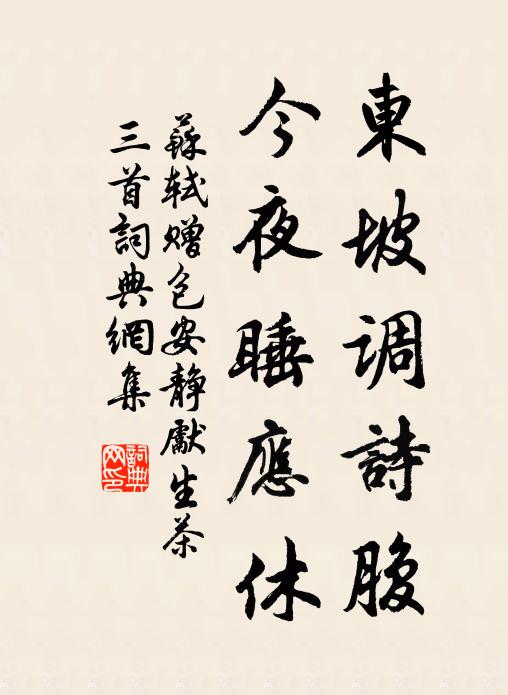 東坡调詩腹
今夜睡應休
蘇軾赠包安靜獻生茶
三首詞典網集
詞典
网印